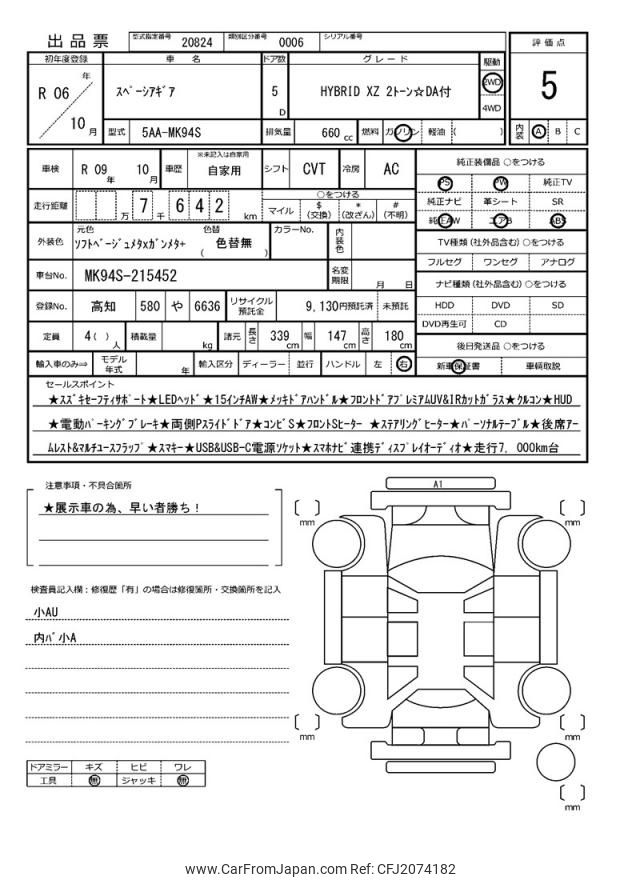 出品票 型式指定番号 20824 類別区分番号 0006 シリアル番号
評価点
5
内装 A B C
初年度登録 車名 ドア数 グレード 駆動
R 06 年 10 月
スペーシアギア 5 D HYBRID XZ 2トーン☆DA付 2WD
4WD
型式 5AA-MK94S 排気量 660 cc 燃料 ガソリン 軽油 ( )
車検 R 09 年 10 月 車歴 ※未記入は自家用 自家用 シフト CVT 冷房 AC
走行距離 万 7 千 6 4 2 km
○をつける
マイル $(交換) *(改ざん) #(不明)
外装色 元色 ソフトベージュメタXガンメタ+ 色替 ( 色替無 ) カラーNo. 内装色
車台No. MK94S-215452 名変期限 月 日
登録No. 高知 580 や 6636 リサイクル預託金 9,130円預託済 未預託
定員 4( ) 人 積載量 kg 諸元 長さ 339 cm 幅 147 cm 高さ 180 cm
輸入車のみ⇒ モデル年式 年 輸入区分 ディーラー 並行 ハンドル 左 右
純正装備品 ○をつける
PS PW 純正TV
純正ナビ 革シート SR
純正AW エアB ABS
TV種類(社外品含む)○をつける
フルセグ ワンセグ アナログ
ナビ種類(社外品含む)○をつける
HDD DVD SD
DVD再生可 CD
後日発送品 ○をつける
新車保証書 車輌取説
セールスポイント
★スズキセーフティサポート★LEDヘッド★15インチAW★メッキドアハンドル★フロントドアプレミアムUV&IRカットガラス★クルコン★HUD
★電動パーキングブレーキ★両側Pスライドドア★コンビS★フロントSヒーター ★ステアリングヒーター★パーソナルテーブル★後席アー
ムレスト&マルチユースフラップ★スマキー★USB&USB-C電源ソケット★スマホナビ連携ディスプレイオーディオ★走行7,000km台
注意事項・不具合箇所
★展示車の為、早い者勝ち!
検査員記入欄:修復歴「有」の場合は修復箇所・交換箇所を記入
小AU
内バ小A
ドアミラー キズ ヒビ ワレ
工具 無 ジャッキ 無
A1
mm
mm
mm
mm
mm
www.CarFromJapan.com Ref: CFJ2074182